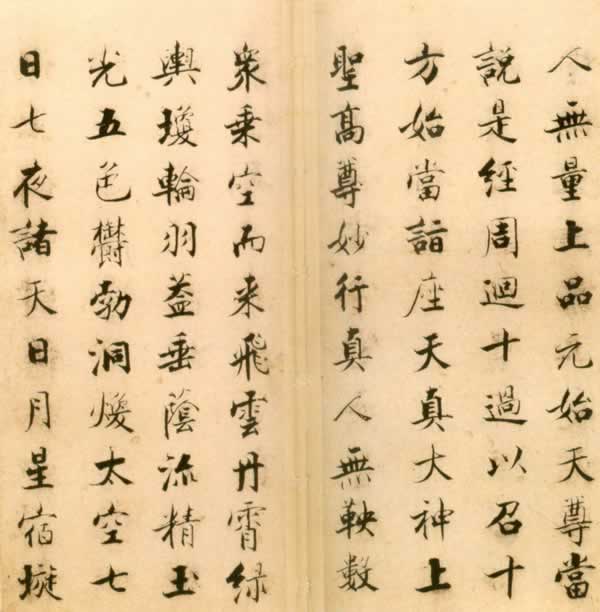 人無量上品元始天尊當
說是經周迴十過以召十
方始當詣座天真大神上
聖髙尊妙行真人無鞅數
衆乗空而来飛雲丹霄緑
輿瓊輪羽蓋垂蔭流精玉
光五色欝勃洞煥太空七
日七夜諸天日月星宿璇